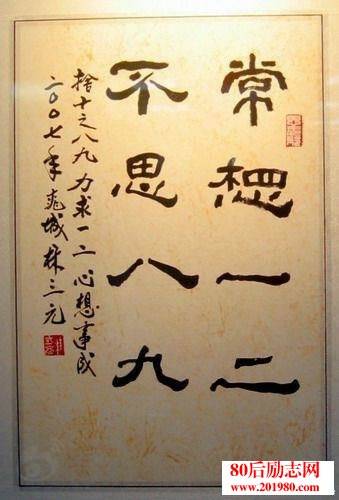 常想一二
不思八九
捨十之八九力求一二心想事成
二〇〇七年 城林三元
80后励志网
www.201980.com